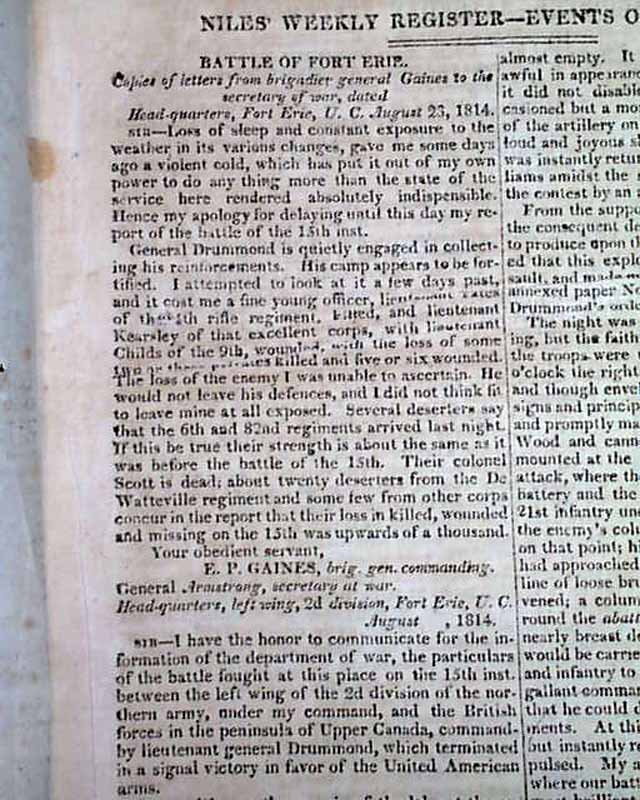 NILES' WEEKLY REGISTER—EVENTS O
BATTLE OF FORT ERIE.
Copies of letters from brigadier general Gaines to the
secretary of war, dated
Head-quarters, Fort Erie, U. C. August 23, 1814.
SIR—Loss of sleep and constant exposure to the
weather in its various changes, gave me some days
ago a violent cold, which has put it out of my own
power to do any thing more than the state of the
service here rendered absolutely indispensible.
Hence my apology for delaying until this day my re-
port of the battle of the 15th inst.
General Drummond is quietly engaged in collect-
ing his reinforcements. His camp appears to be for-
tified. I attempted to look at it a few days past,
and it cost me a fine young officer, lieutenant
of the 4th rifle regiment, killed, and lieutenant
Kearsley of that excellent corps, with lieutenant
Childs of the 9th, wounded, with the loss of some
two or three privates killed and five or six wounded.
The loss of the enemy I was unable to ascertain. He
would not leave his defences, and I did not think fit
to leave mine at all exposed. Several deserters say
that the 6th and 82nd regiments arrived last night.
If this be true their strength is about the same as it
was before the battle of the 15th. Their colonel
Scott is dead; about twenty deserters from the De
Watteville regiment and some few from other corps
concur in the report that their loss in killed, wounded
and missing on the 15th was upwards of a thousand.
Your obedient servant,
E. P. GAINES, brig. gen. commanding.
General Armstrong, secretary at war.
Head-quarters, left wing, 2d division, Fort Erie, U. C.
August , 1814.
SIR—I have the honor to communicate for the in-
formation of the department of war, the particulars
of the battle fought at this place on the 15th inst.
between the left wing of the 2d division of the nor-
thern army, under my command, and the British
forces in the peninsula of Upper Canada, command-
by lieutenant general Drummond, which terminated
in a signal victory in favor of the United American
arms.
almost empty. It
awful in appearan
it did not disable
casioned but a mo
of the artillery on
loud and joyous s
was instantly retu
liams amidst the
the contest by an
From the supp
the consequent de
to produce upon t
ed that this explo
sault, and made
annexed paper No
Drummond's orde
The night was
ing, but the faith
the troops were
o'clock the right
and though enve
signs and princip
and promptly ma
Wood and cann
mounted at the
attack, where th
battery and the
21st infantry un
the enemy's colu
on that point; hi
had approached
line of loose bru
vened; a colum
round the abatt
nearly breast de
would be carrie
and infantry to
gallant comma
that he could d
ments. At thi
but instantly re
pulsed. My a
where our batt